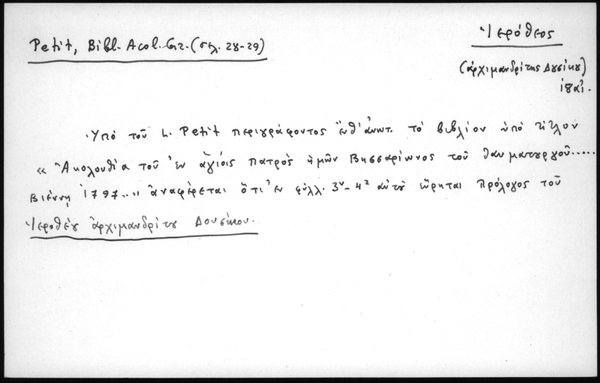 Petit, Bibl. Acol. Gr. (σελ. 28-29)
Ἱερόθεος
(ἀρχιμανδρίτης Δουσίκου)
Ὑπό τοῦ L. Petit περιγράφοντος ἔνθ' ἀνωτ. τό βιβλίον ὑπό τίτλον
« Ἀκολουθία τοῦ ἐν ἁγίοις πατρός ἡμῶν Βησσαρίωνος τοῦ θαυματουργοῦ.....
Βιέννῃ 1797..» ἀναφέρεται ὅτι ἐν φύλλ. 3ᵛ-4ᵃ αὐτοῦ εὕρηται Πρόλογος τοῦ
Ἱεροθέου ἀρχιμανδρίτου Δουσίκου.